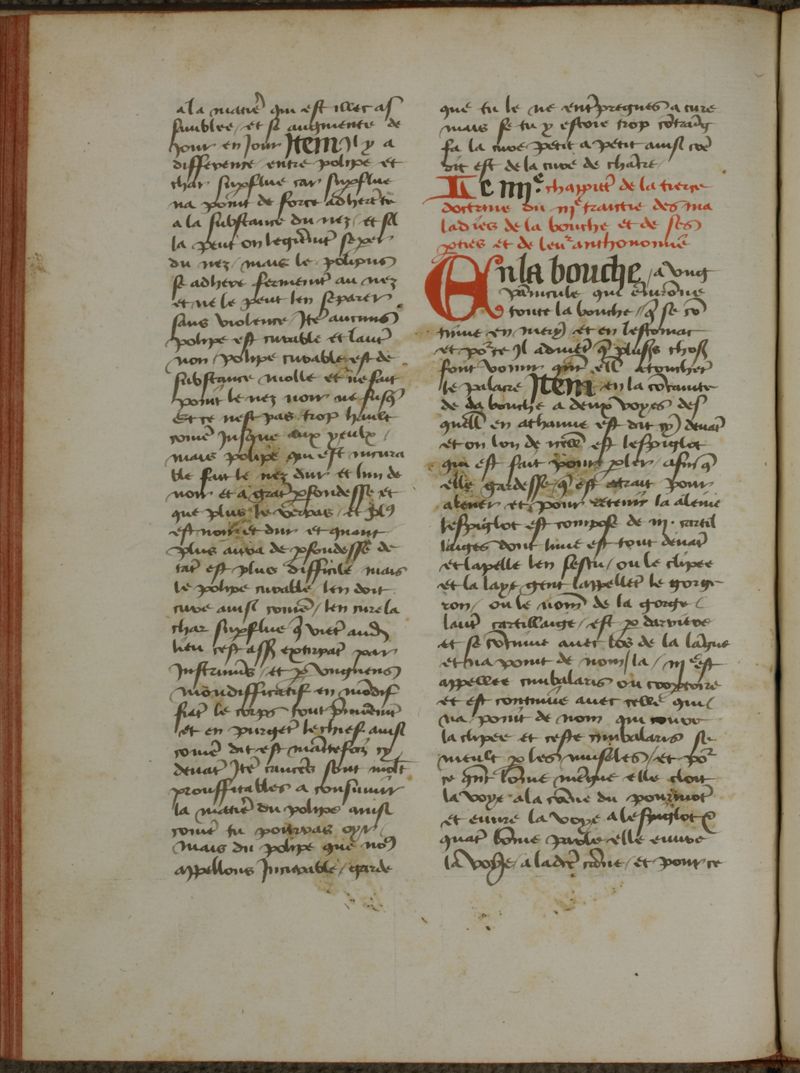 a la matie᷑ qui est illec as
semblee / et se augmente de
jour en jour Item il y a
difference entre polipe et
char supflue car supflue
na point de force adherēte
a la substance du nez / et se
la peut on legiermēt separer
du nez / mais le polipus
se adhere fermemt au nez
et ne le peut len separer
sans violence / Ite aucuns
polipe est curable et lautr̄
non / polipe curable est de
substance molle et ne fait
point le nez noir ne fusq̄
Et ce nest pas trop hault
comē jusque aux yeulx /
mais polipe qui est incura
ble fait le nez dur et lun de
noir et a grat̄ pfondesse et
que plus le verras / et pl9
est noir et dur et quant
plus aura de pfondesse de
tat̄ est plus difficile mais
le polipe curable / len doit
curer ainsi comē / len cure la
char supflue
lieu cest assr̄ extirpat̄ par
Instrumēs / et p unguens
mondificatif en mōdif
fiat̄ le corps tout premieremt̄
et en purget̄ le chief ainsi
comē dit est māntefois cy
devāt Ite cauteres sont mōlt
prouffitables a consumer
la matie᷑ du polipe ainsi
comē tu pourras oyr /
Mais du polipe que no9
appellons Incurable / garde
que tu le ne entpregnes a cure
mais se tu y estoie trop cōtraiḡ
fa la cure petit a petit ainsi cōe
dit est de la cure de chancre
Le iiije chappit᷑ de la tierce
doctrine du ije traictie des ma
ladies de la bouche et de ses
pties et de leur anthonomie
En la bouche / a ung
pānicule qui environe
toute la bouche / q̄ se cō
tinue en mery) et en lestomac
et po᷑ ce il advient q̄ plus9 chos9
font vomir quāt ell9 atouchēt
le palatre Item en la cōcavite
de la bouche a deux voyes des
quell9 en athanne est dit cy) devāt
et on lon de icell9 est lespiglot
qui est fait pour pler / afin q̄
elle gardesse / q̄ est atrait pour
alener / et pour retenir la aleine
lespiglot est compose de iij. cartil
laiges dont lune est tout devāt
et lapelle len sesau / ou le clipee
et la laye gent lappellet̄ le gorge
ron / ou le nom de la gorge /
lautr̄ cartillaige / est p darriere
et se cōtinue avec los de la lāgue
et na point de nom / la / iije est
appellee cimbalaris ou coop̄toire
et est continuee avec celle qui /
na point de nom qui couvre
la clipee et ceste cimbalaris se
meult p les muscles / et po᷑
ce quāt lōme mēgue elle clost
la voye a la cānne du poumōt
et euvre la voye a lespiglot &
quāt lōme parle elle euvre
la voye / a ladte cāne / et pour ce